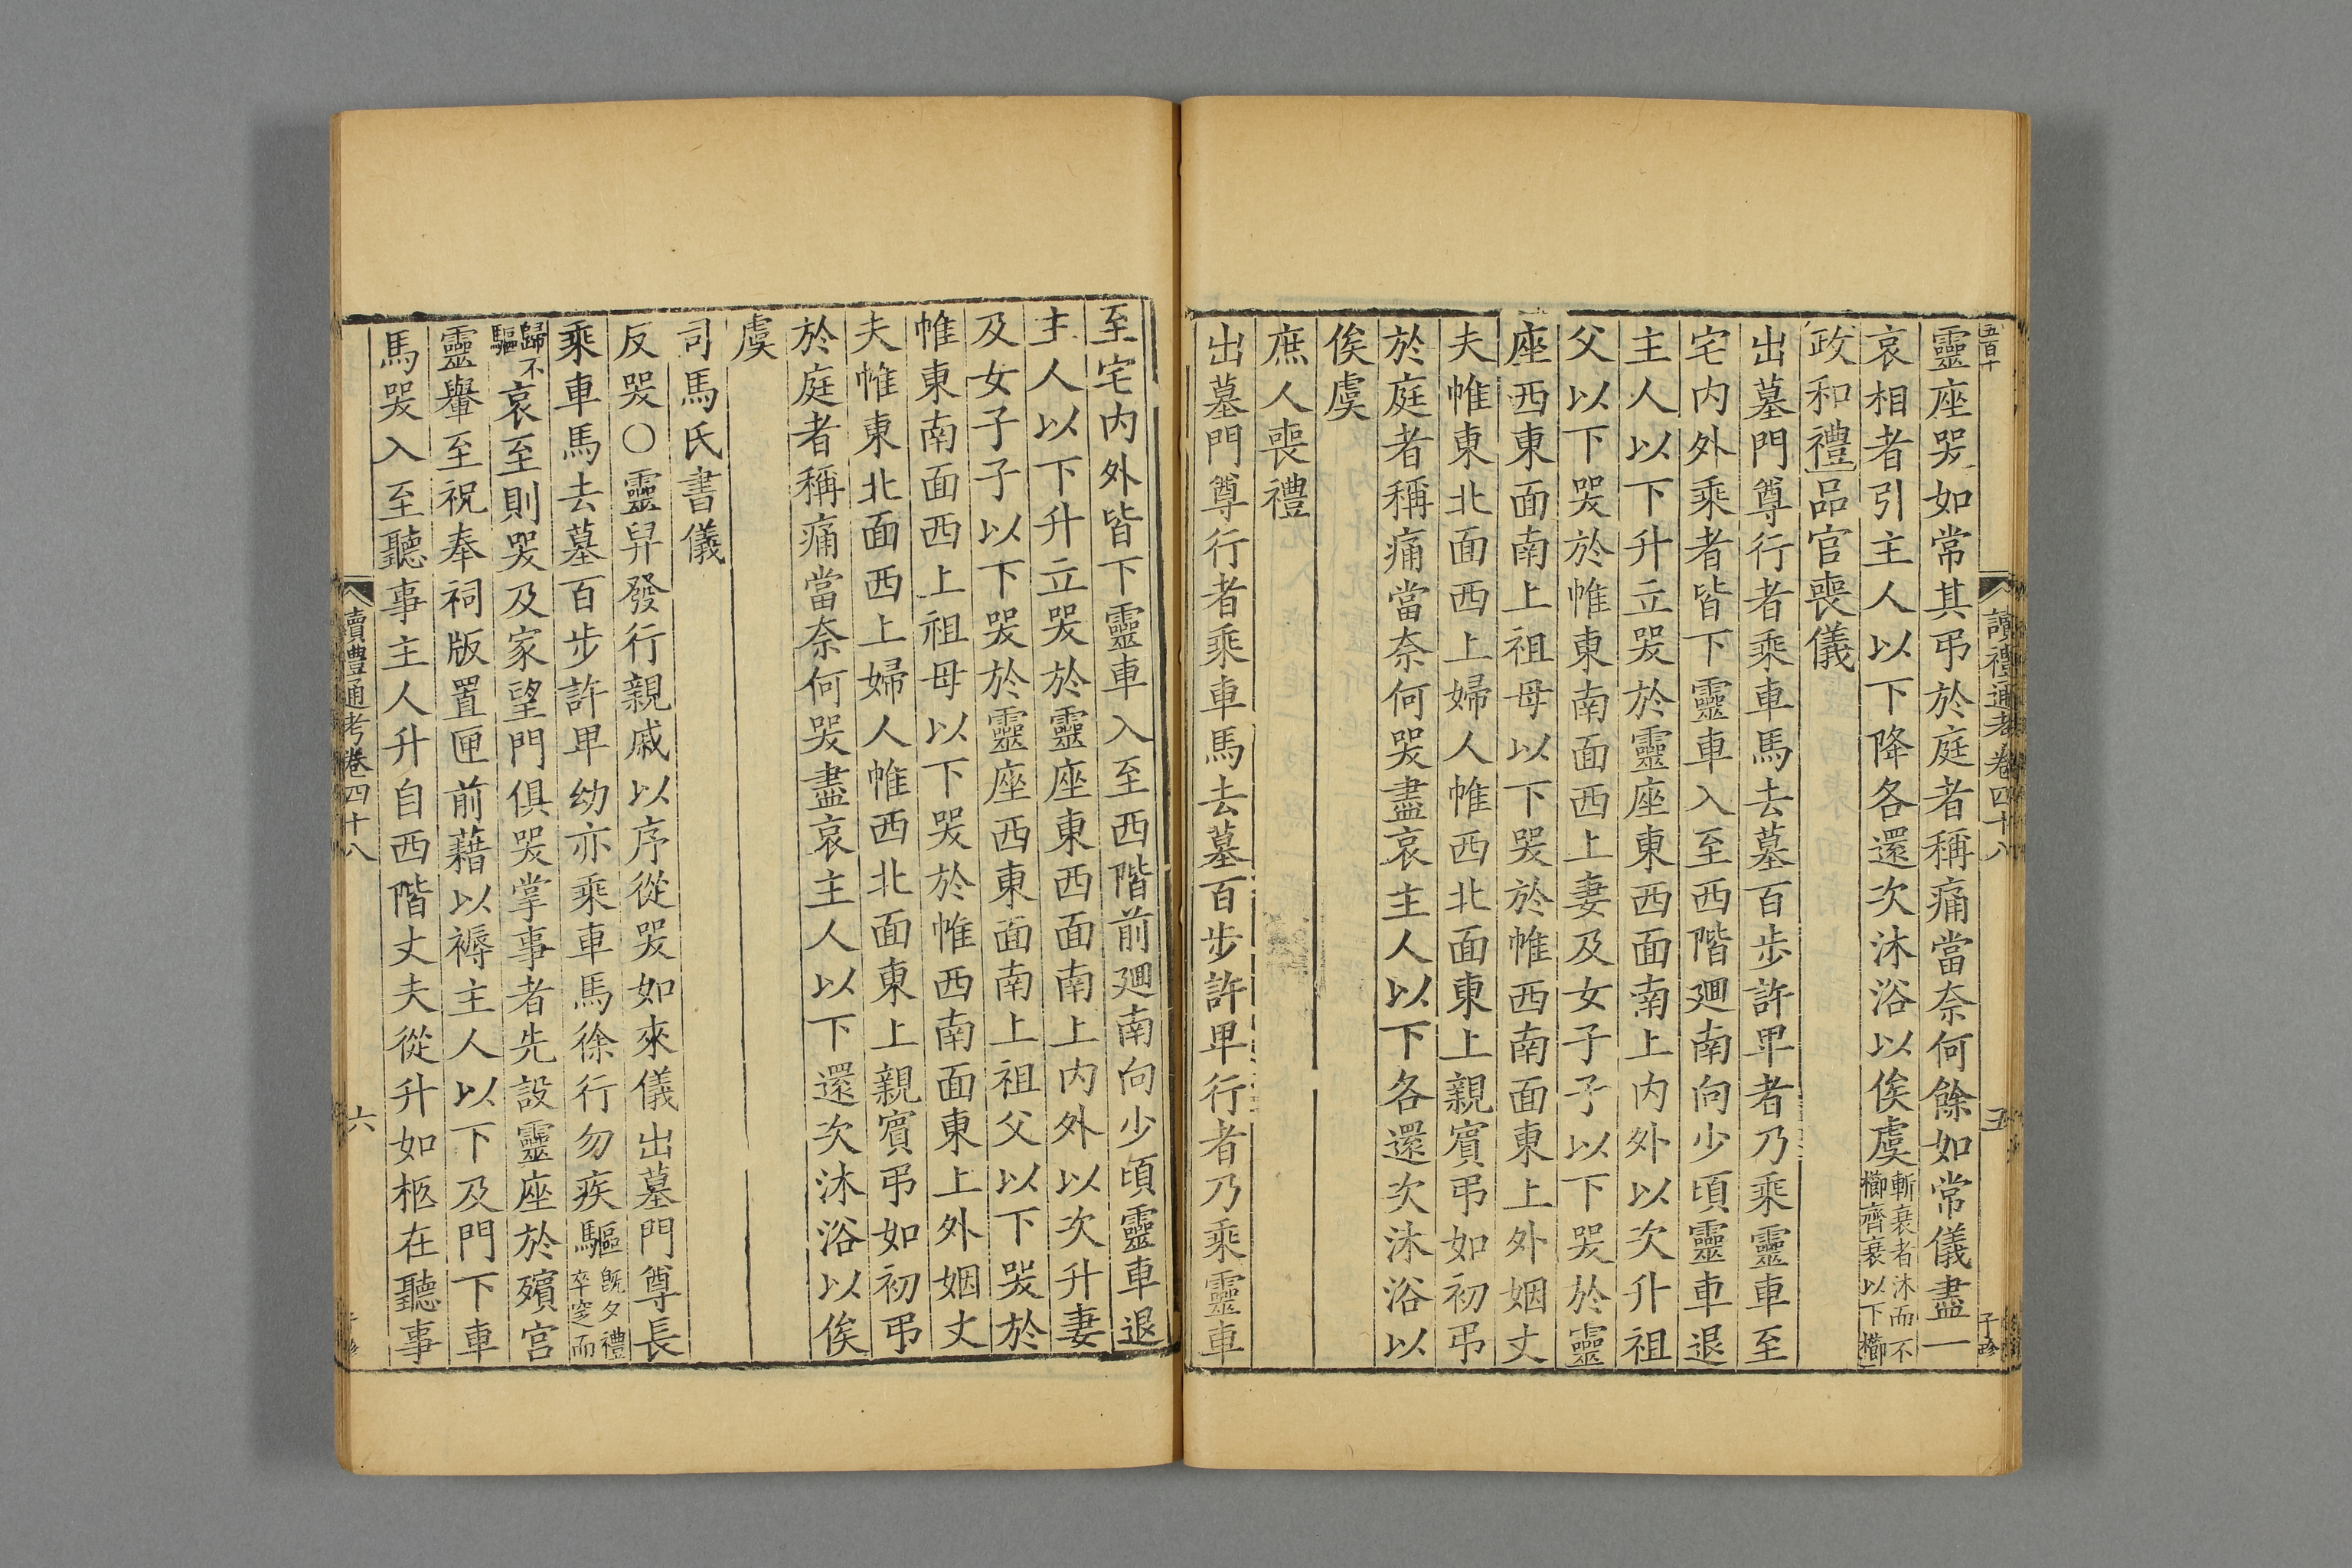 五百十
讀禮通考卷四十八
五
子珍
靈座哭如常其弔於庭者稱痛當奈何餘如常儀盡一
哀相者引主人以下降各還次沐浴以俟虞斬衰者沐而不
櫛齊衰以下櫛
政和禮品官喪儀
出墓門尊行者乘車馬去墓百步許卑者乃乘靈車至
宅内外乘者皆下靈車入至西階𢌞南向少頃靈車退
主人以下升立哭於靈座東西面南上内外以次升祖
父以下哭於帷東南面西上妻及女子子以下哭於靈
座西東面南上祖母以下哭於帷西南面東上外姻丈
夫帷東北面西上婦人帷西北面東上親賓弔如初弔
於庭者稱痛當奈何哭盡哀主人以下各還次沐浴以
俟虞
庶人喪禮
出墓門尊行者乘車馬去墓百步許卑行者乃乘靈車
至宅内外皆下靈車入至西階前𢌞南向少頃靈車退
主人以下升立哭於靈座東西面南上内外以次升妻
及女子子以下哭於靈座西東面南上祖父以下哭於
帷東南面西上祖母以下哭於帷西南面東上外姻丈
夫帷東北面西上婦人帷西北面東上親賓弔如初弔
於庭者稱痛當奈何哭盡哀主人以下還次沐浴以俟
虞
司馬氏書儀
反哭○靈舁發行親戚以序從哭如來儀出墓門尊長
乘車馬去墓百步許卑幼亦乘車馬徐行勿疾驅旣夕禮
卒窆而
歸不
驅哀至則哭及家望門俱哭掌事者先設靈座於殯宮
靈轝至祝奉祠版置匣前藉以褥主人以下及門下車
馬哭入至聽事主人升自西階丈夫從升如柩在聽事
讀禮通考卷四十八
六